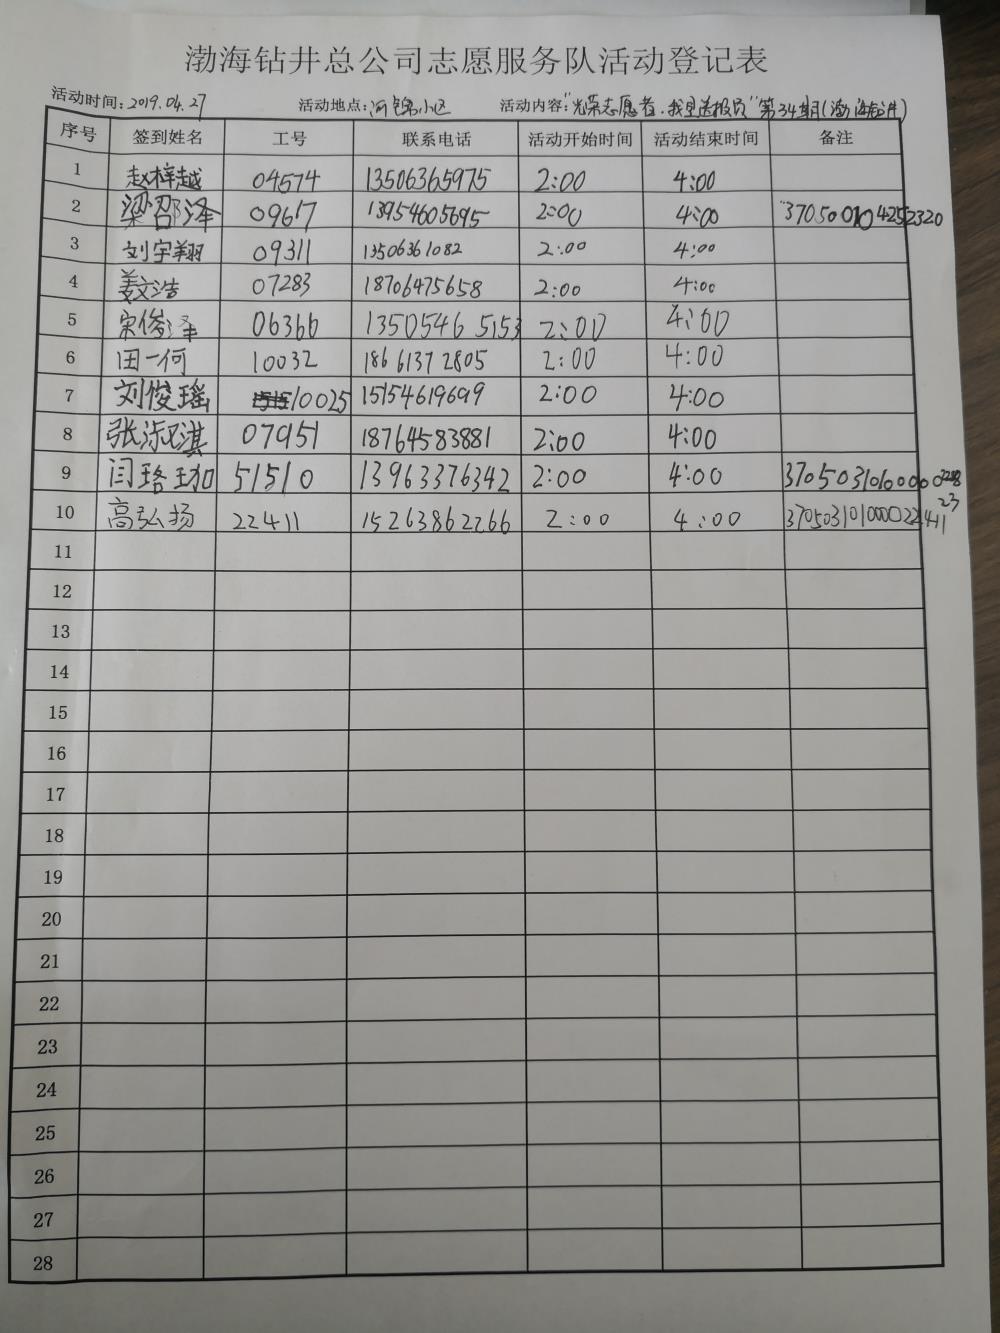 渤海钻井总公司志愿服务队活动登记表
活动时间：2019.04.27 活动地点：河锦小区 活动内容："光荣志愿者·我是送报员"第34期(渤海钻井)
序号 签到姓名 工号 联系电话 活动开始时间 活动结束时间 备注
1 赵梓越 04574 13506365975 2:00 4:00
2 梁邵泽 09617 13954605695 2:00 4:00 3705000104252320
3 刘宇翔 09311 13506361082 2:00 4:00
4 姜文浩 07283 18706475658 2:00 4:00
5 宋俊泽 06366 13505465153 2:00 4:00
6 田一何 10032 18661372805 2:00 4:00
7 刘俊瑶 10025 15154619699 2:00 4:00
8 张淑淇 07951 18764583881 2:00 4:00
9 闫珞珈 51510 13963376342 2:00 4:00
10 高弘扬 22411 15263862266 2:00 4:00
11
12
13
14
15
16
17
18
19
20
21
22
23
24
25
26
27
28